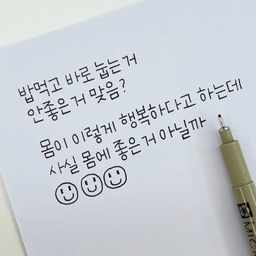 밥먹고 바로 눕는거
안좋은거 맞음?
몸이 이렇게 행복하다고 하는데
사실 몸에 좋은거 아닐까